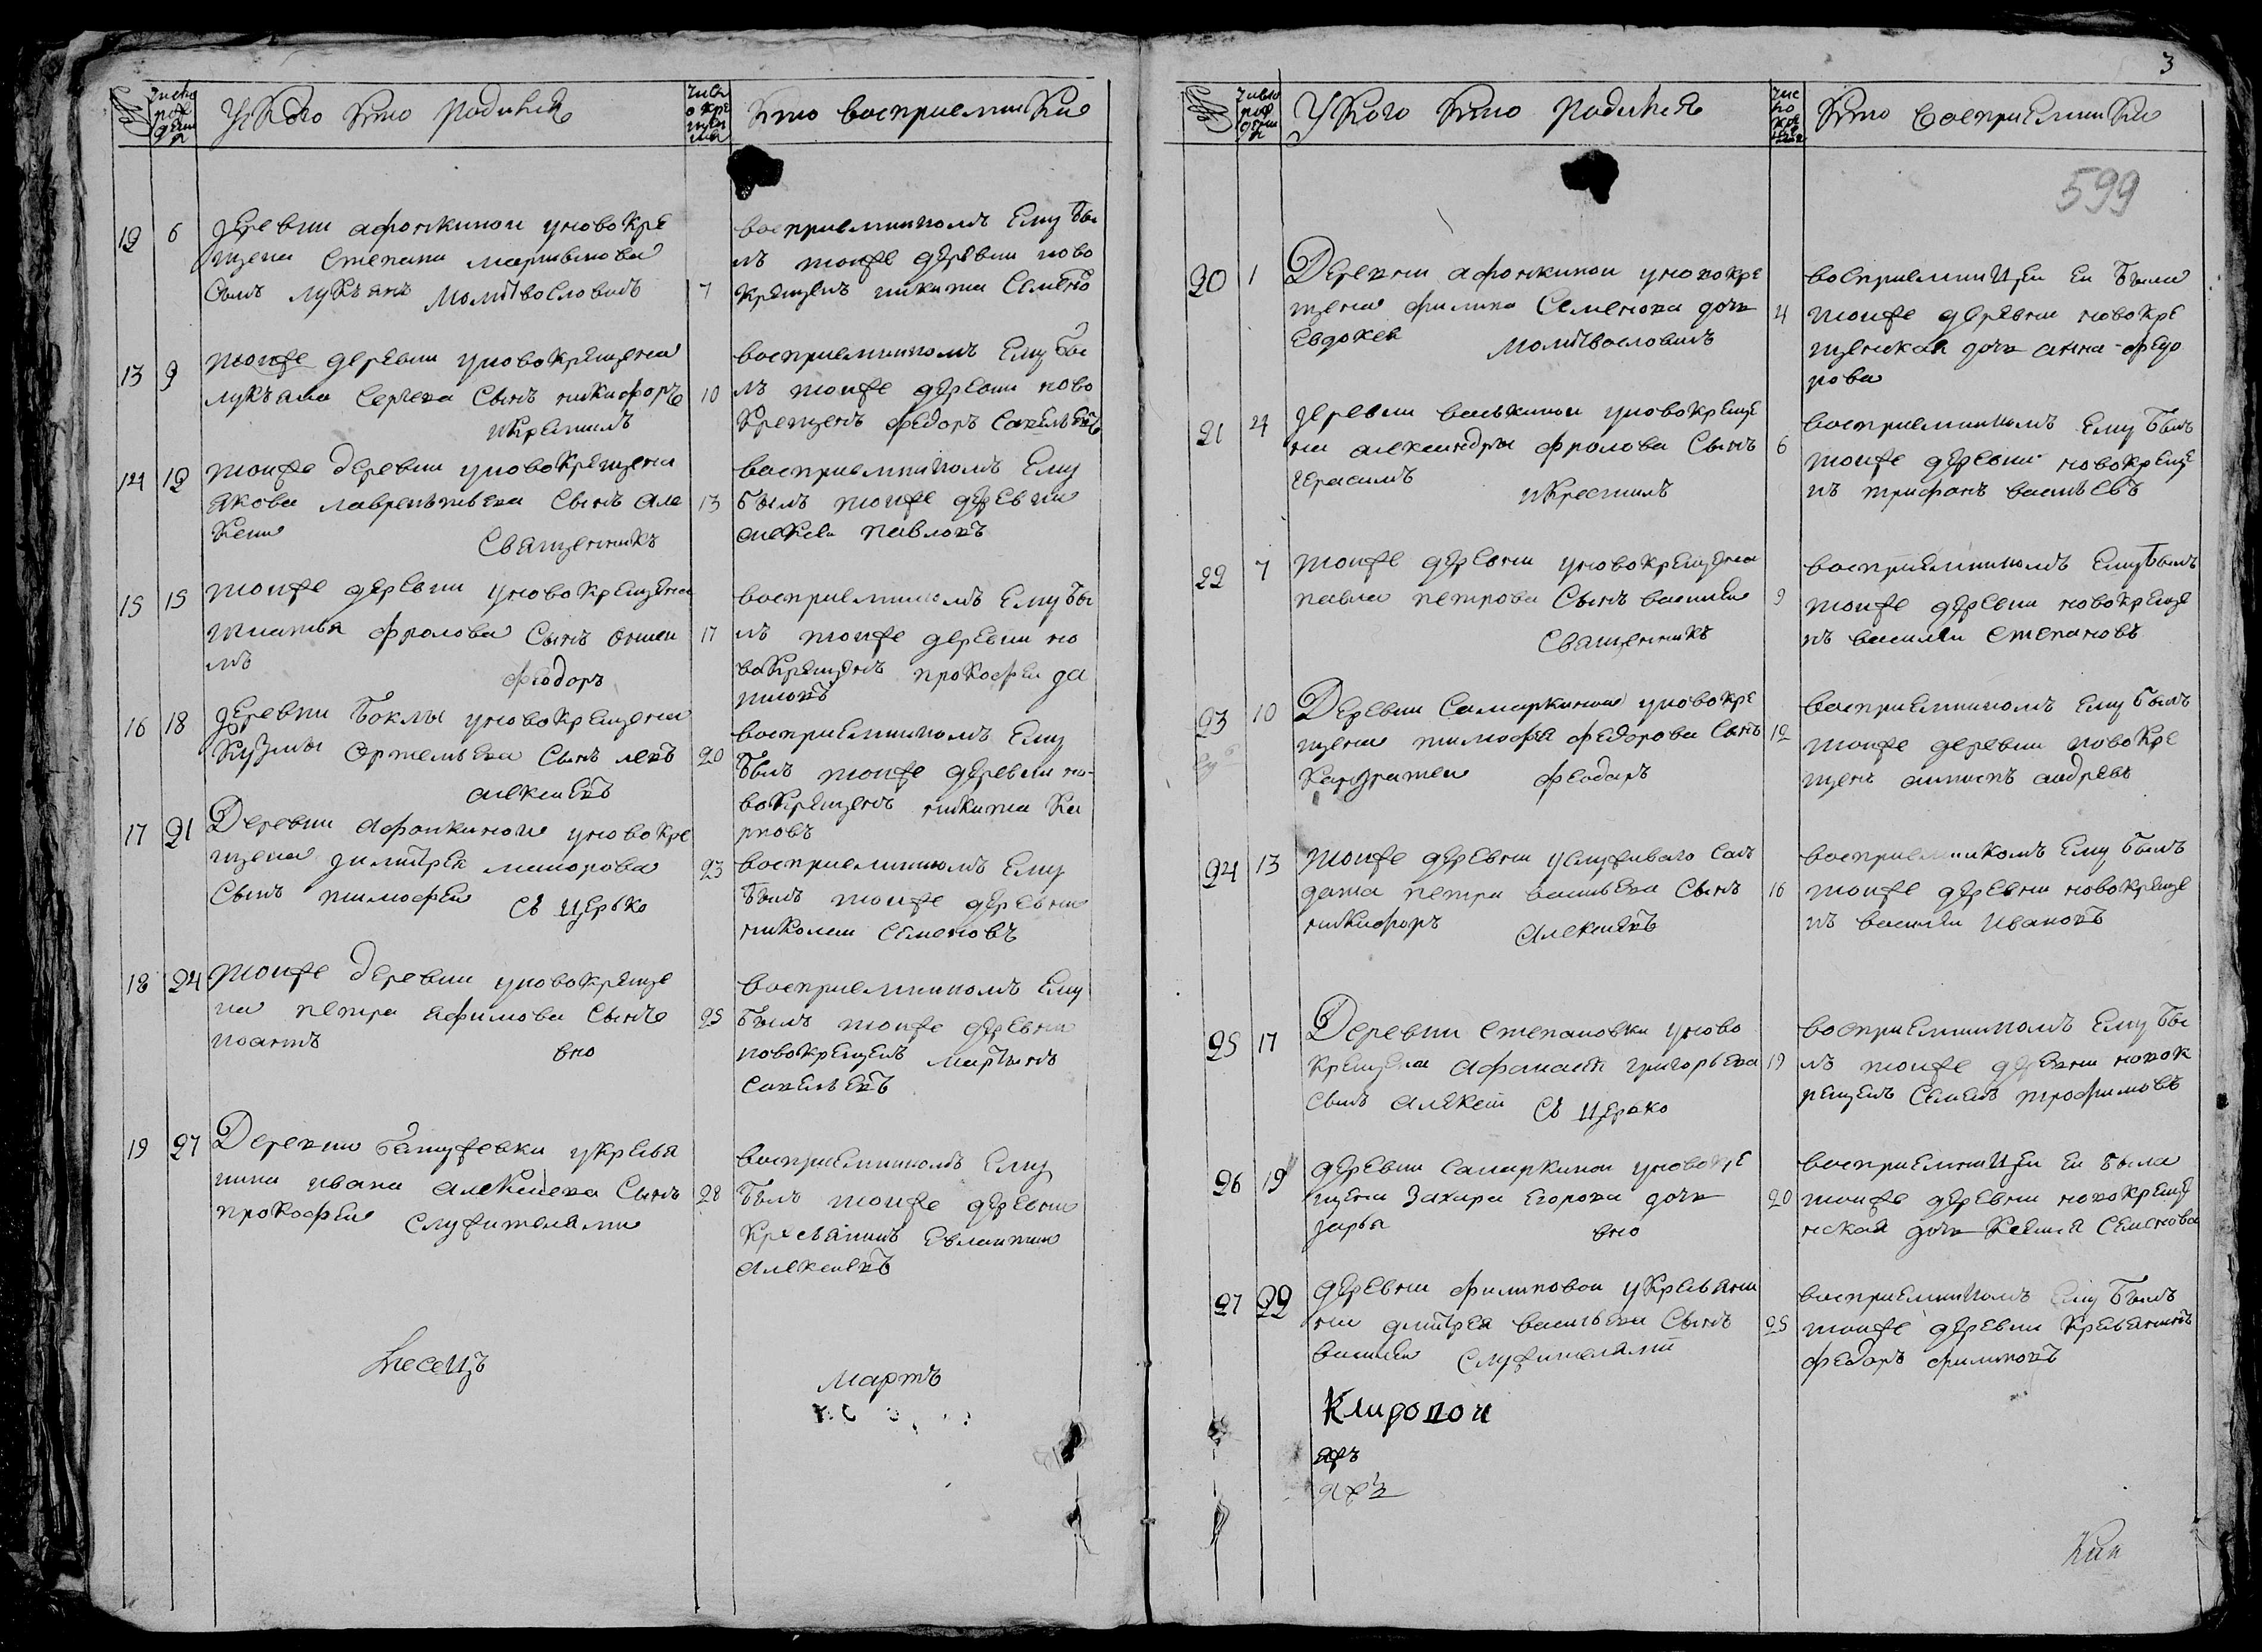 число рождения
У кого кто родился
число крещения
кто восприемники
12
6
деревни афонкинои уновокре
щена степана мартынова
сынъ лукъянъ молитвословилъ
7
восприемникомъ ему бы
лъ тоиже деревни ново
крещенъ никита семено
13
9
тоиже деревни уновокрещена
лукъяна сергева сынъ никифоръ
икрестилъ
10
восприемникомъ ему бы
лъ тоиже деревни ново
крещенъ федоръ савельевъ
14
12
тоиже деревни уновокрещена
якова лаврентьева сынъ але
ксеи
священникъ
13
восприемникомъ ему
былъ тоиже деревни
алексеи павловъ
15
15
тоиже деревни уновокрещена
игнатья фролова сынъ
лъ
феодоръ
17
восприемникомъ ему бы
лъ тоиже деревни но
вокрещенъ прокофеи да
ниловъ
16
18
деревни боклы уновокрещена
кузмы ортемьева сынъ левъ
алексиевъ
20
восприемникомъ ему
былъ тоиже деревни но-
вокрещенъ никита ка
рповъ
17
21
Деревни афонкинои уновокре
щена димитрея маиорова
сынъ тимофеи съ церько
23
восприемникомъ ему
былъ тоиже деревни
николаи семеновъ
18
24
тоиже деревни уновокреще
на петра афимова сынъ
иоаннъ
вно
25
восприемникомъ ему
былъ тоиже деревни
новокрещенъ мартынъ
савельевъ
19
27
Деревни укрестья
нина ивана алексиева сынъ
прокофеи служителями
28
восприемникомъ ему
былъ тоиже деревни
крестьянинъ евлантии
алексиевъ
месецъ
мартъ
3
число рождения
У кого кто родился
число крещения
кто восприемники
599
20
1
Деревни афонкинои уновокре
щена филипа семенова дочь
евдокея молитвословилъ
4
восприемницеи еи была
тоиже деревни новокре
щенская дочь анна федо
рова
21
4
деревни васькинои уновокреще
на александра фролова сынъ
герасимъ
икрестилъ
6
восприемникомъ ему былъ
тоиже деревни новокреще
нъ трифонъ васильевъ
22
7
тоиже деревни уновокрещена
павла петрова сынъ василеи
священникъ
9
восприемникомъ ему былъ
тоиже деревни новокреще
нъ василеи степановъ
23
10
Деревни самаркинои уновокре
щена тимофея федорова сынъ
кандратеи феодоръ
12
восприемникомъ ему былъ
тоиже деревни новокре
щенъ антипъ андревъ
24
13
тоиже деревни услуживаго сал
дата петра васильева сынъ
никифоръ
алексиевъ
16
восприемникомъ ему былъ
тоиже деревни новокреще
нъ василеи ивановъ
25
17
Деревни степановки уново
крещена афанасея григорьева
сынъ алексеи съ церько
19
восприемникомъ ему бы
лъ тоиже деревни новок
рещенъ семенъ трофимовъ
26
19
деревни самаркинои уновокре
щена захара егорова дочь
дарья
вно
20
восприемницеи еи была
тоиже деревни новокреще
нская дочь ксения семенова
27
22
деревни филиповои укрестьяни
на дмитрея васильева сынъ
василеи служителями
25
восприемникомъ ему былъ
тоиже деревни крестьянинъ
федоръ филиповъ